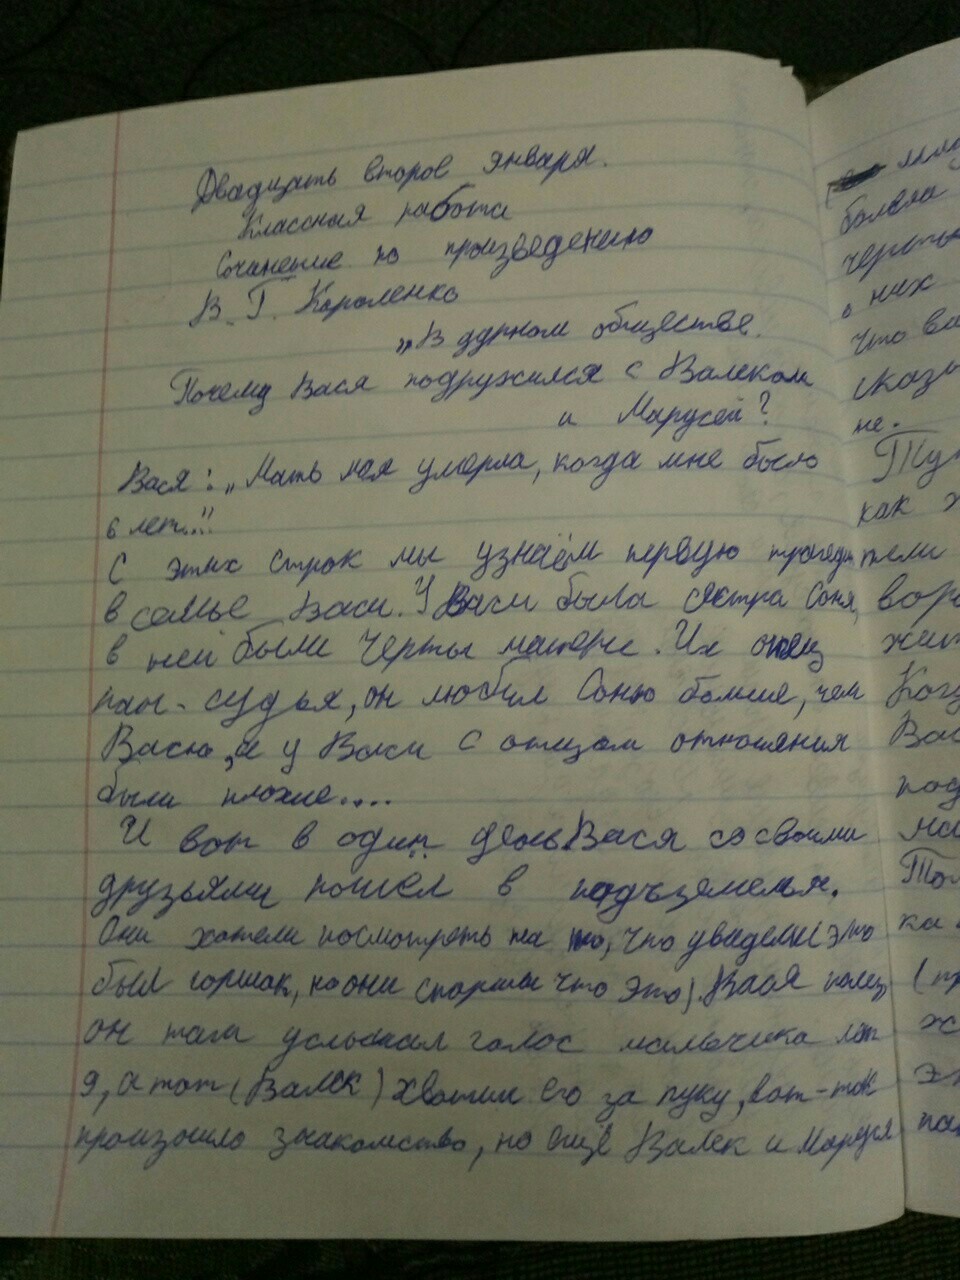 Двадцать второе января.
Классная работа
Сочинение по произведению
В. Г. Короленко
„В дурном обществе.
Почему Вася подружился с Валеком
и Марусей?
Вася: „Мать моя умерла, когда мне было
6 лет..."
С этих строк мы узнаём первую трагеди
в семье Васи. У Васи была сестра Соня,
в ней были черты матери. Их отец
пан-судья, он любил Соню больше, чем
Васю, а у Васи с отцом отношения
были плохие....
И вот в один день Вася со своими
друзьями пошёл в подъземелья.
Они хотели посмотреть на то, что увидели (это
был горшок, но они спорили что это). Вася полез,
он там услышал голос мальчика лет
9, а тот (Валек) хватил его за руку, вот-так
произошло знакомство, но ещё Валек и Маруся
болела
черты
о них
что ва
сказы
не.
Тут
как
тели
воро
жит
Ког
Вас
под
ма
То
ка
(пр
ж
эт
пан